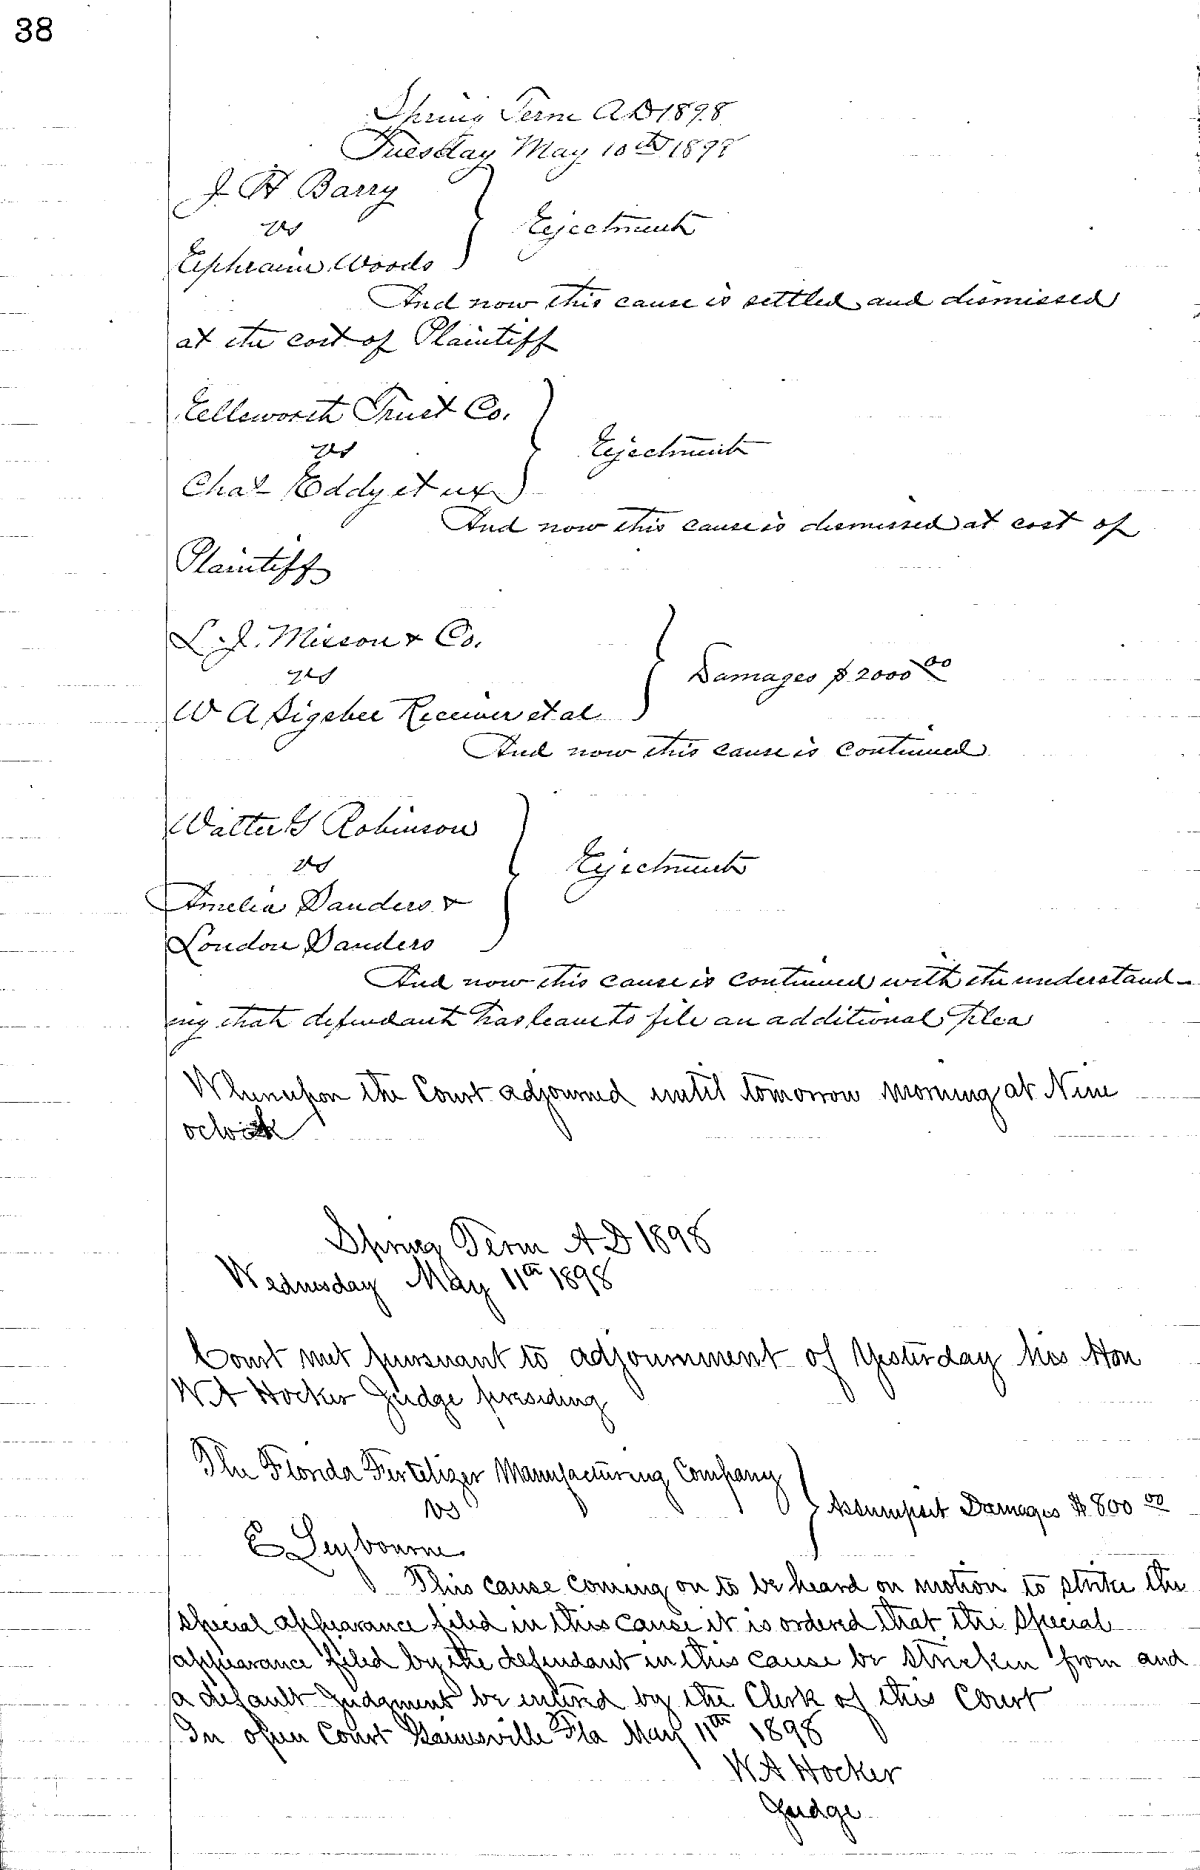 38
Spring Term A.D. 1898
Tuesday May 10th 1898
J. H Barry
vs
Ephraim Woods
Ejectment
And now this cause is settled and dismissed
at the cost of Plaintiff
Ellsworth Trust Co.
vs
Chas Eddy et ux
Ejectment
And now this cause is dismissed at cost of
Plaintiff
L. J. & Co.
vs
W A Receiver et al
Damages $2000.00
And now this cause is continued
Walter G Robinson
vs
Amelia Sanders &
London Sanders
Ejectment
And now this cause is continued with the understand-
ing that defendant has leave to file an additional Plea
Whereupon the Court adjourned until tomorrow morning at Nine
oclock
Spring Term A D 1898
Wednesday May 11th 1898
Court met pursuant to adjournment of Yesterday his Hon
W A Hocker Judge presiding
The Florida Fertilizer Manufacturing Company
vs
E Leybourne
Assumpsit Damages $800 00
This cause coming on to be heard on motion to strike the
special appearance filed in this cause it is ordered that the special
appearance filed by the defendant in this cause be stricken from and
a default Judgment be entered by the Clerk of this Court
In open Court Gainesville Fla May 11th 1898
W A Hocker
Judge